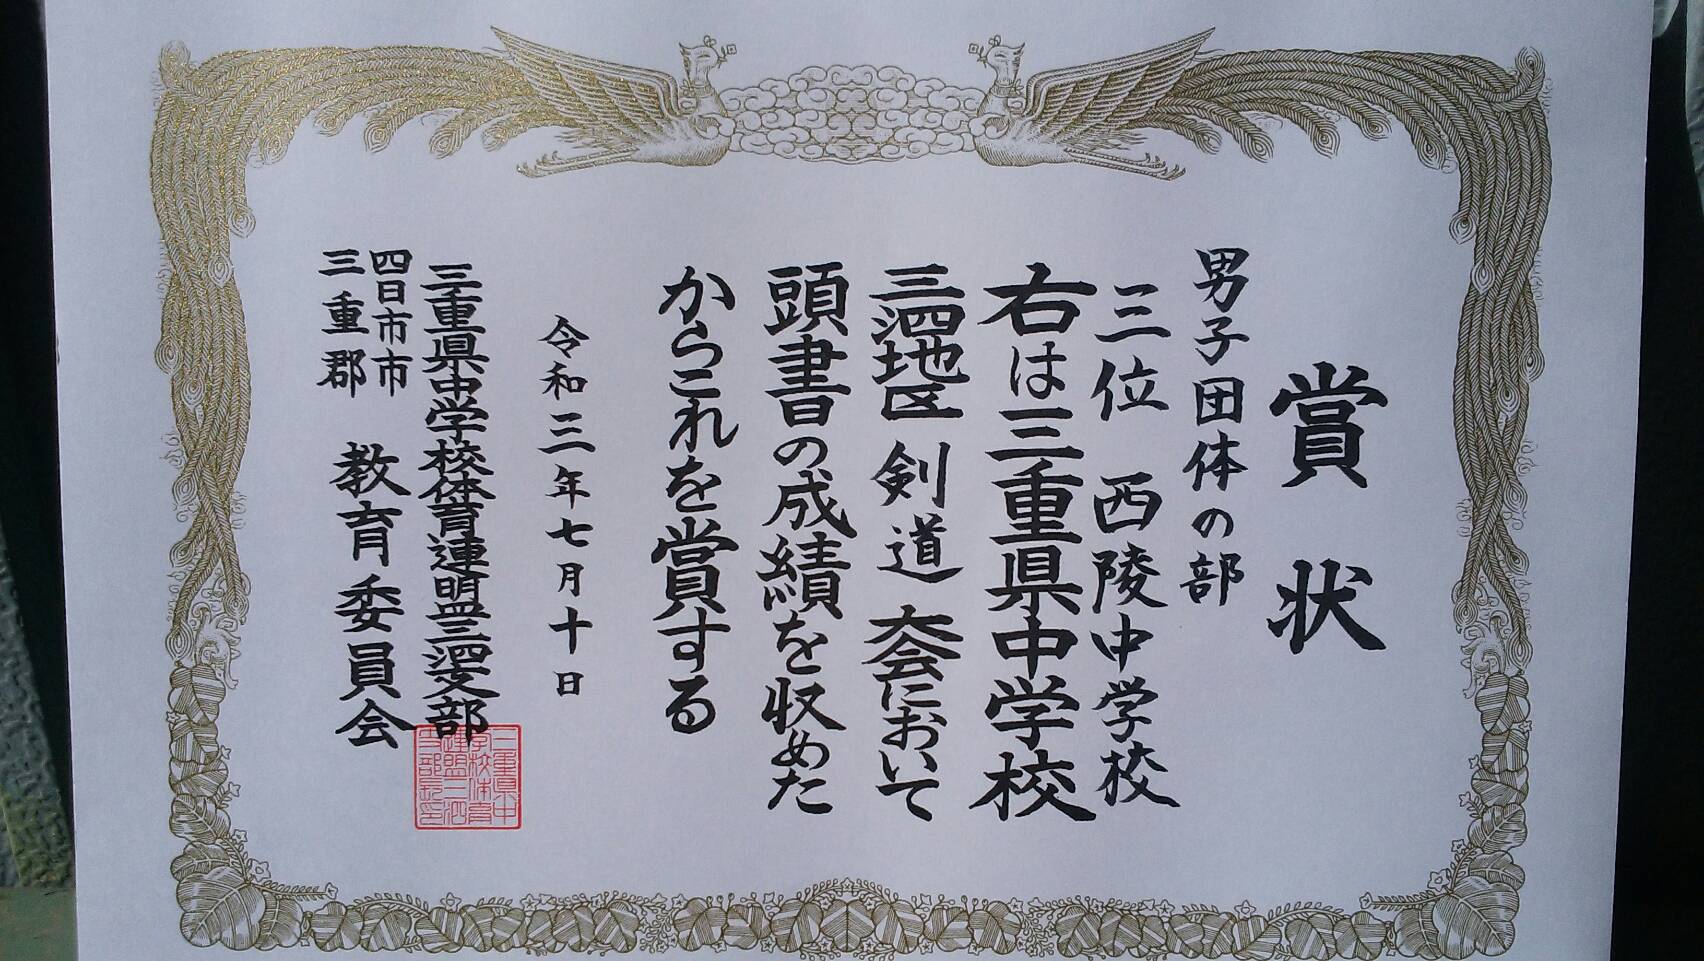 賞状
男子団体の部
三位 西陵中学校
右は三重県中学校
三泗地区 剣道 大会において
頭書の成績を収めた
からこれを賞する
令和三年七月十日
三重県中学校体育連盟三泗支部
四日市市
三重郡
教育委員会
三重県中
学校体育
連盟三泗
支部長印